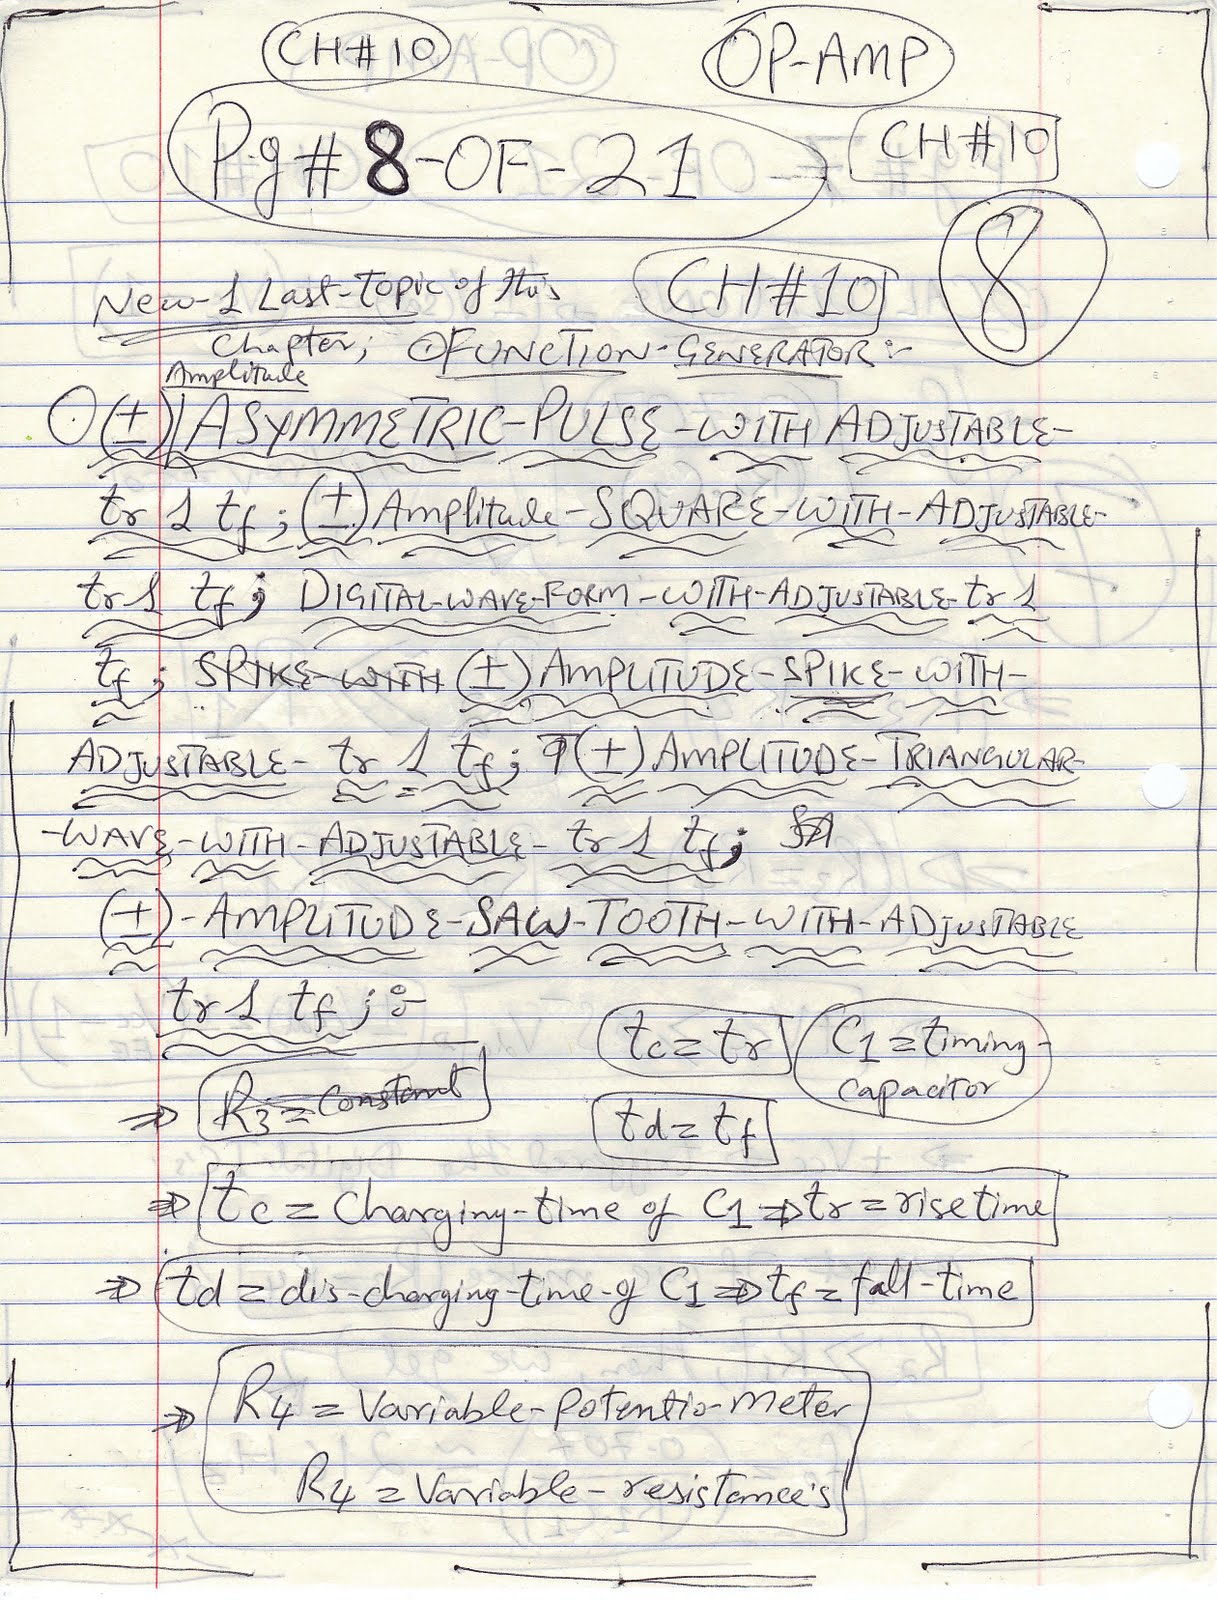 CH#10
OP-AMP
Pg# 8-OF-21
CH#10
8
New-1 Last-Topic of this
CH#10
Chapter; ⊙FUNCTION-GENERATOR:-
Amplitude
(±) ASYMMETRIC-PULSE-WITH ADJUSTABLE-
tr & tf; (±) Amplitude-SQUARE-WITH-ADJUSTABLE-
tr & tf; DIGITAL-WAVE-FORM-WITH-ADJUSTABLE-tr &
tf; SPIKE-WITH (±) AMPLITUDE-SPIKE-WITH-
ADJUSTABLE- tr & tf; (±) AMPLITUDE-TRIANGULAR-
-WAVE-WITH-ADJUSTABLE- tr & tf;
(±)-AMPLITUDE-SAW-TOOTH-WITH-ADJUSTABLE
tr & tf;:-
tc=tr
C1=timing-
capacitor
⇒ R3=Constant
td=tf
⇒ tc=Charging-time of C1⇒tr=rise time
⇒ td=dis-charging-time-of C1⇒tf=fall-time
⇒ R4=Variable-potentio-meter
R4=Variable-resistance's